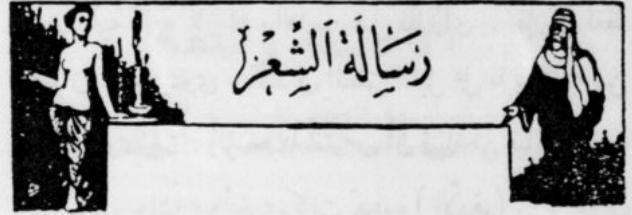 رِسَالَةُ الشِّعْرِ